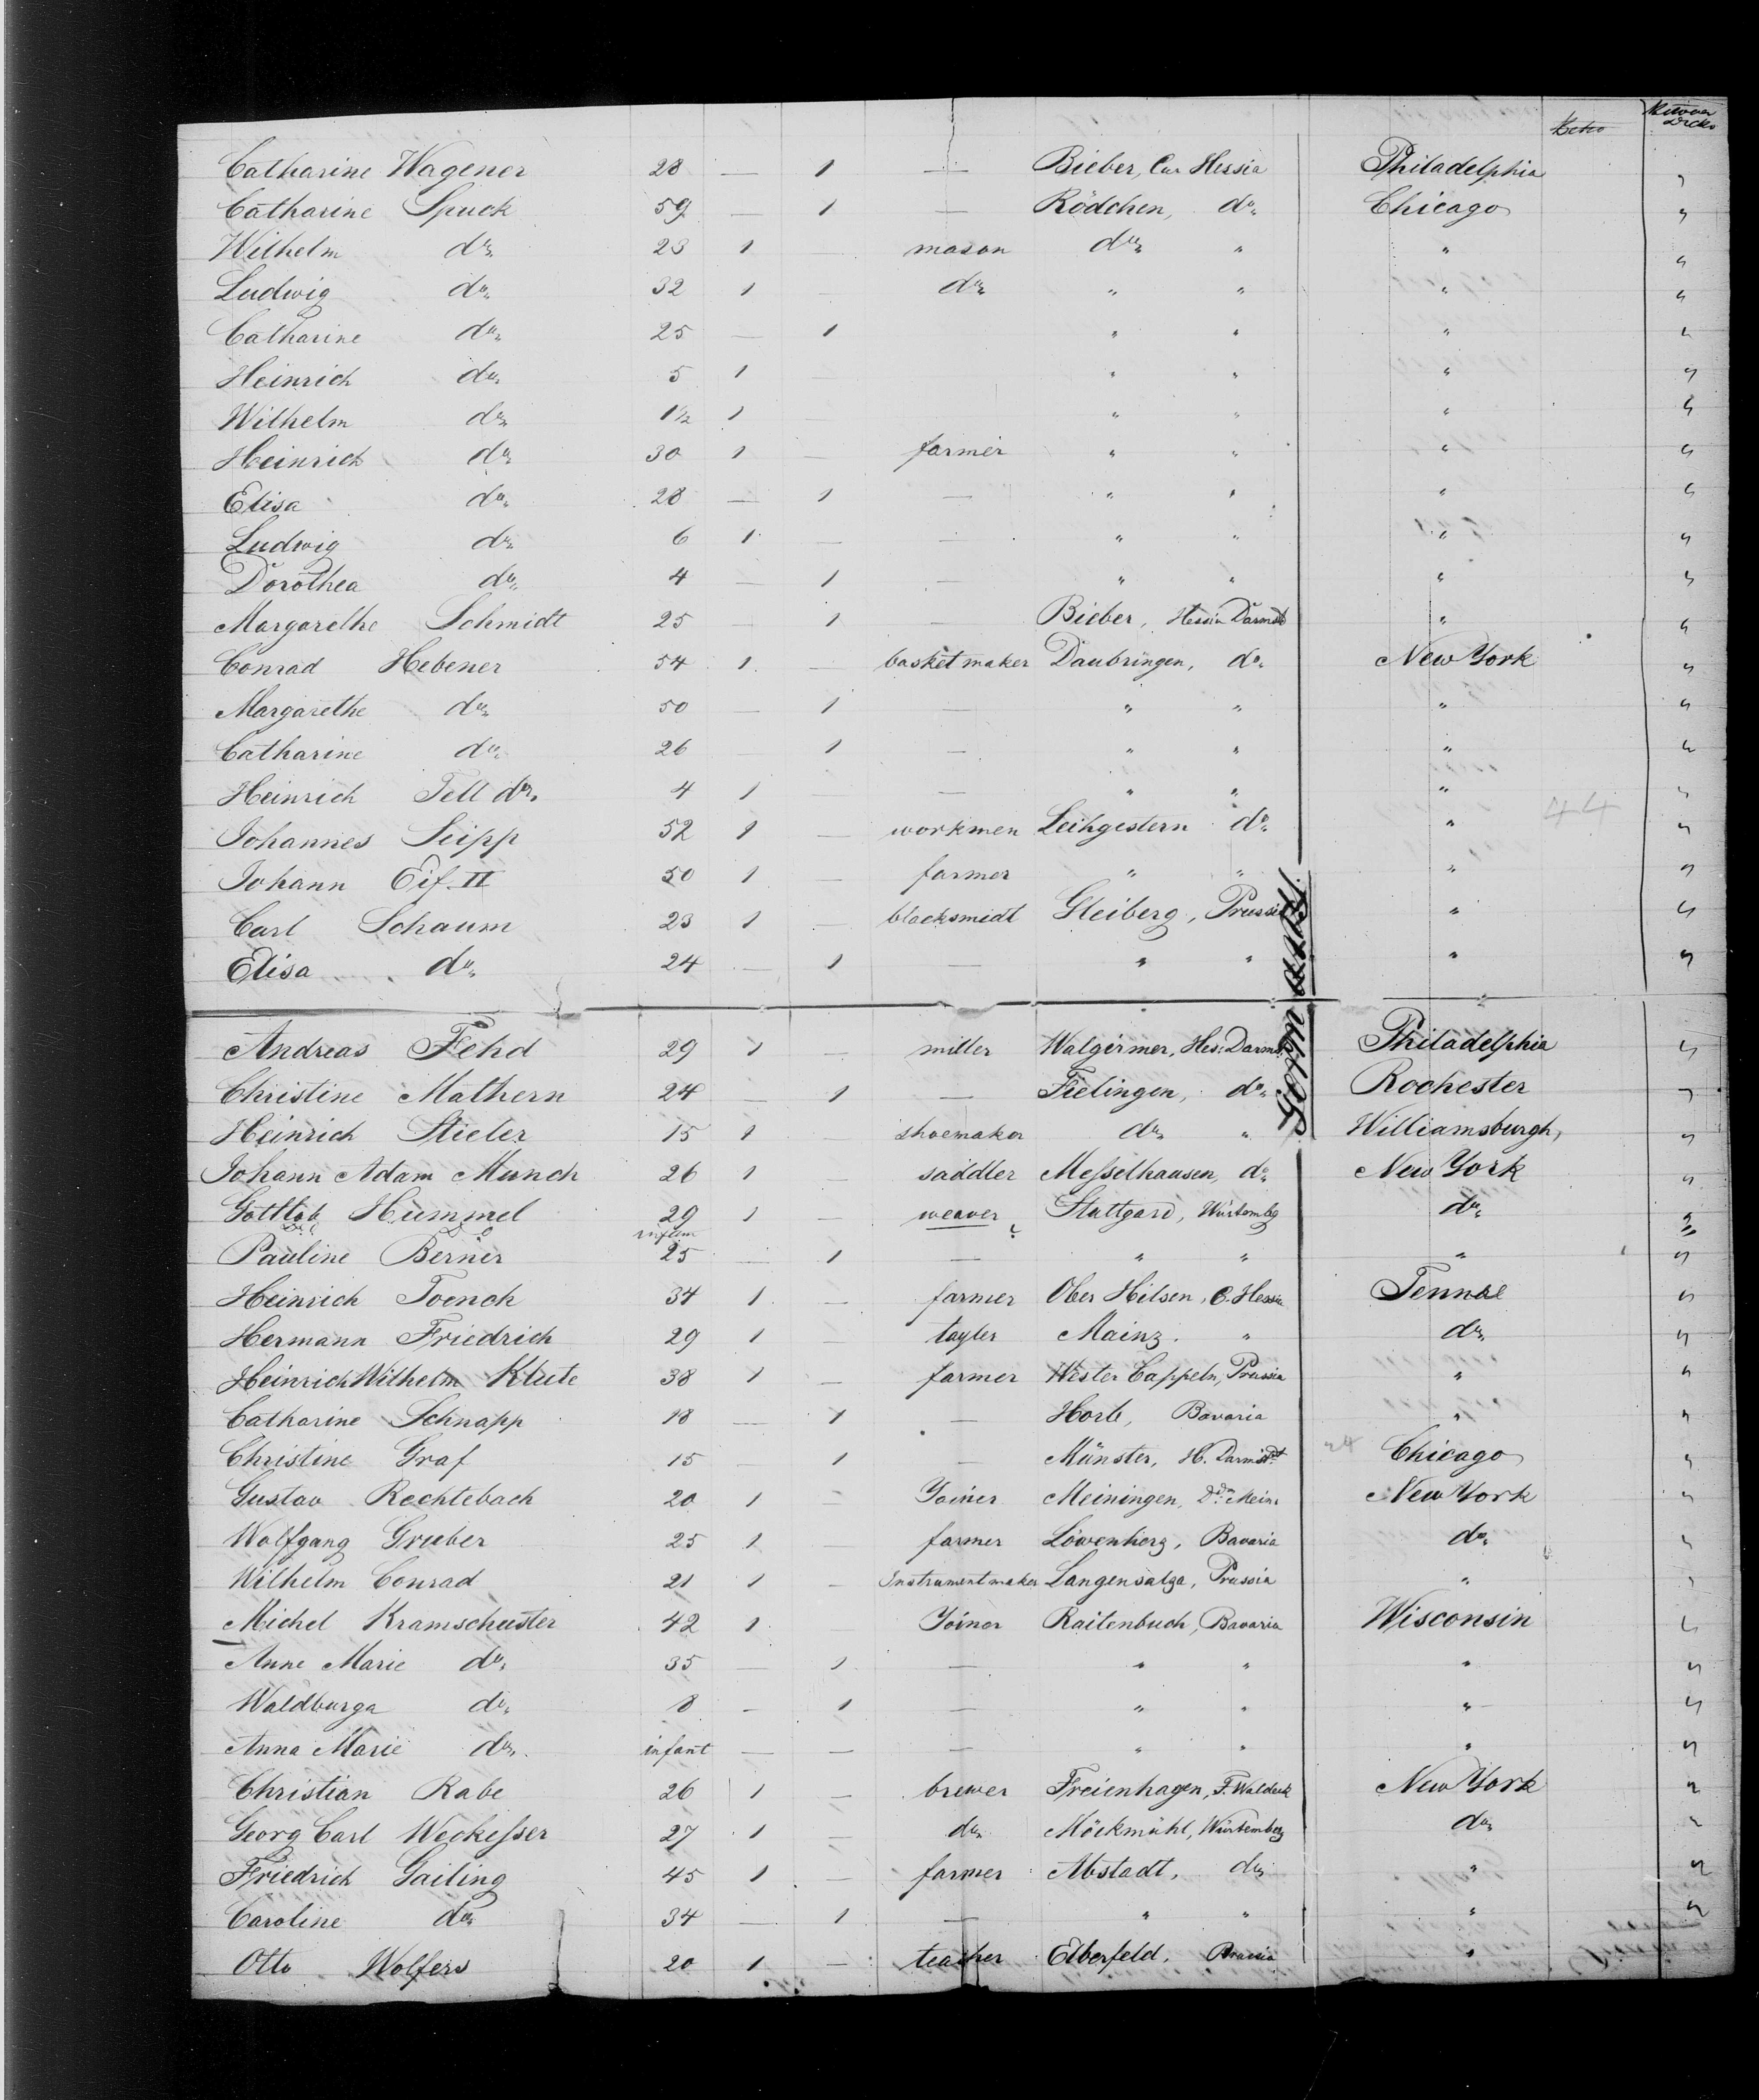 Between Decks
Catharine Wagener 28 — 1 — Bieber, Cur Hessia Philadelphia "
Catharine Spuck 59 — 1 — Rödchen, do. Chicago "
Wilhelm do. 23 1 — mason do. " " "
Ludwig do. 32 1 — do. " " " "
Catharine do. 25 — 1 " " " "
Heinrich do. 5 1 — " " " "
Wilhelm do. 1½ 1 — " " " "
Heinrich do. 30 1 — farmer " " " "
Elisa do. 28 — 1 — " " " "
Ludwig do. 6 1 — — " " " "
Dorothea do. 4 — 1 — " " " "
Margarethe Schmidt 25 — 1 — Bieber, Hessia Darmst " "
Conrad Hebener 54 1 — basket maker Daubringen, do. New York "
Margarethe do. 50 — 1 — " " " "
Catharine do. 26 1 — " " " "
Heinrich Tell do. 4 1 — — " " " "
Johannes Seipp 52 1 — workmen Leihgestern do. " "
44
Johann Eif II 50 1 — farmer " " " "
Carl Schaum 23 1 — blacksmidt Gleiberg, Prussia " "
Elisa do. 24 — 1 — " " " "
Andreas Fehd 29 1 — miller Walgirmer, Hes: Darmst. Philadelphia "
Christine Mathern 24 — 1 — Fielingen, do. Rochester "
Heinrich Stieler 15 1 shoemaker do. " Williamsburgh, "
Johann Adam Munch 26 1 — saddler Messelhausen, do. New York "
Gottlob Hummel 29 1 — weaver Stuttgard, Würtembg do. "
Pauline Berner 25 — 1 — " " " "
Heinrich Toench 34 1 — farmer Ober Hilsen, C. Hessia "
Hermann Friedrich 29 1 — tayler Mainz. " do. "
Heinrich Wilhelm Klute 38 1 — farmer Wester Cappeln, Prussia " "
Catharine Schnapp 18 — 1 — Horb, Bavaria " "
Christine Graf 15 — 1 — Münster, H. Darmstdt. 24 Chicago "
Gustav Rechtebach 20 1 — Joiner Meiningen, New York "
Wolfgang Gruber 25 1 — farmer Löwenherz, Bavaria do. "
Wilhelm Conrad 21 1 — Instrument maker Langensalza, Prussia " "
Michel Kramschuster 42 1 Joiner Raitenbuch, Bavaria Wisconsin "
Anne Marie do. 35 — 1 — " " " "
Waldburga do. 8 — 1 — " " " "
Anna Marie do. infant — — — " " " "
Christian Rabe 26 1 — brewer Freienhagen, F. Waldeck New York "
Georg Carl Weckesser 27 1 — do. Möckmühl, Würtemberg do. "
Friedrich Gailing 45 1 — farmer Abstadt, do. " "
Caroline do. 34 — 1 — " " " "
Otto Wolfers 20 1 — teacher Elberfeld, Prussia "